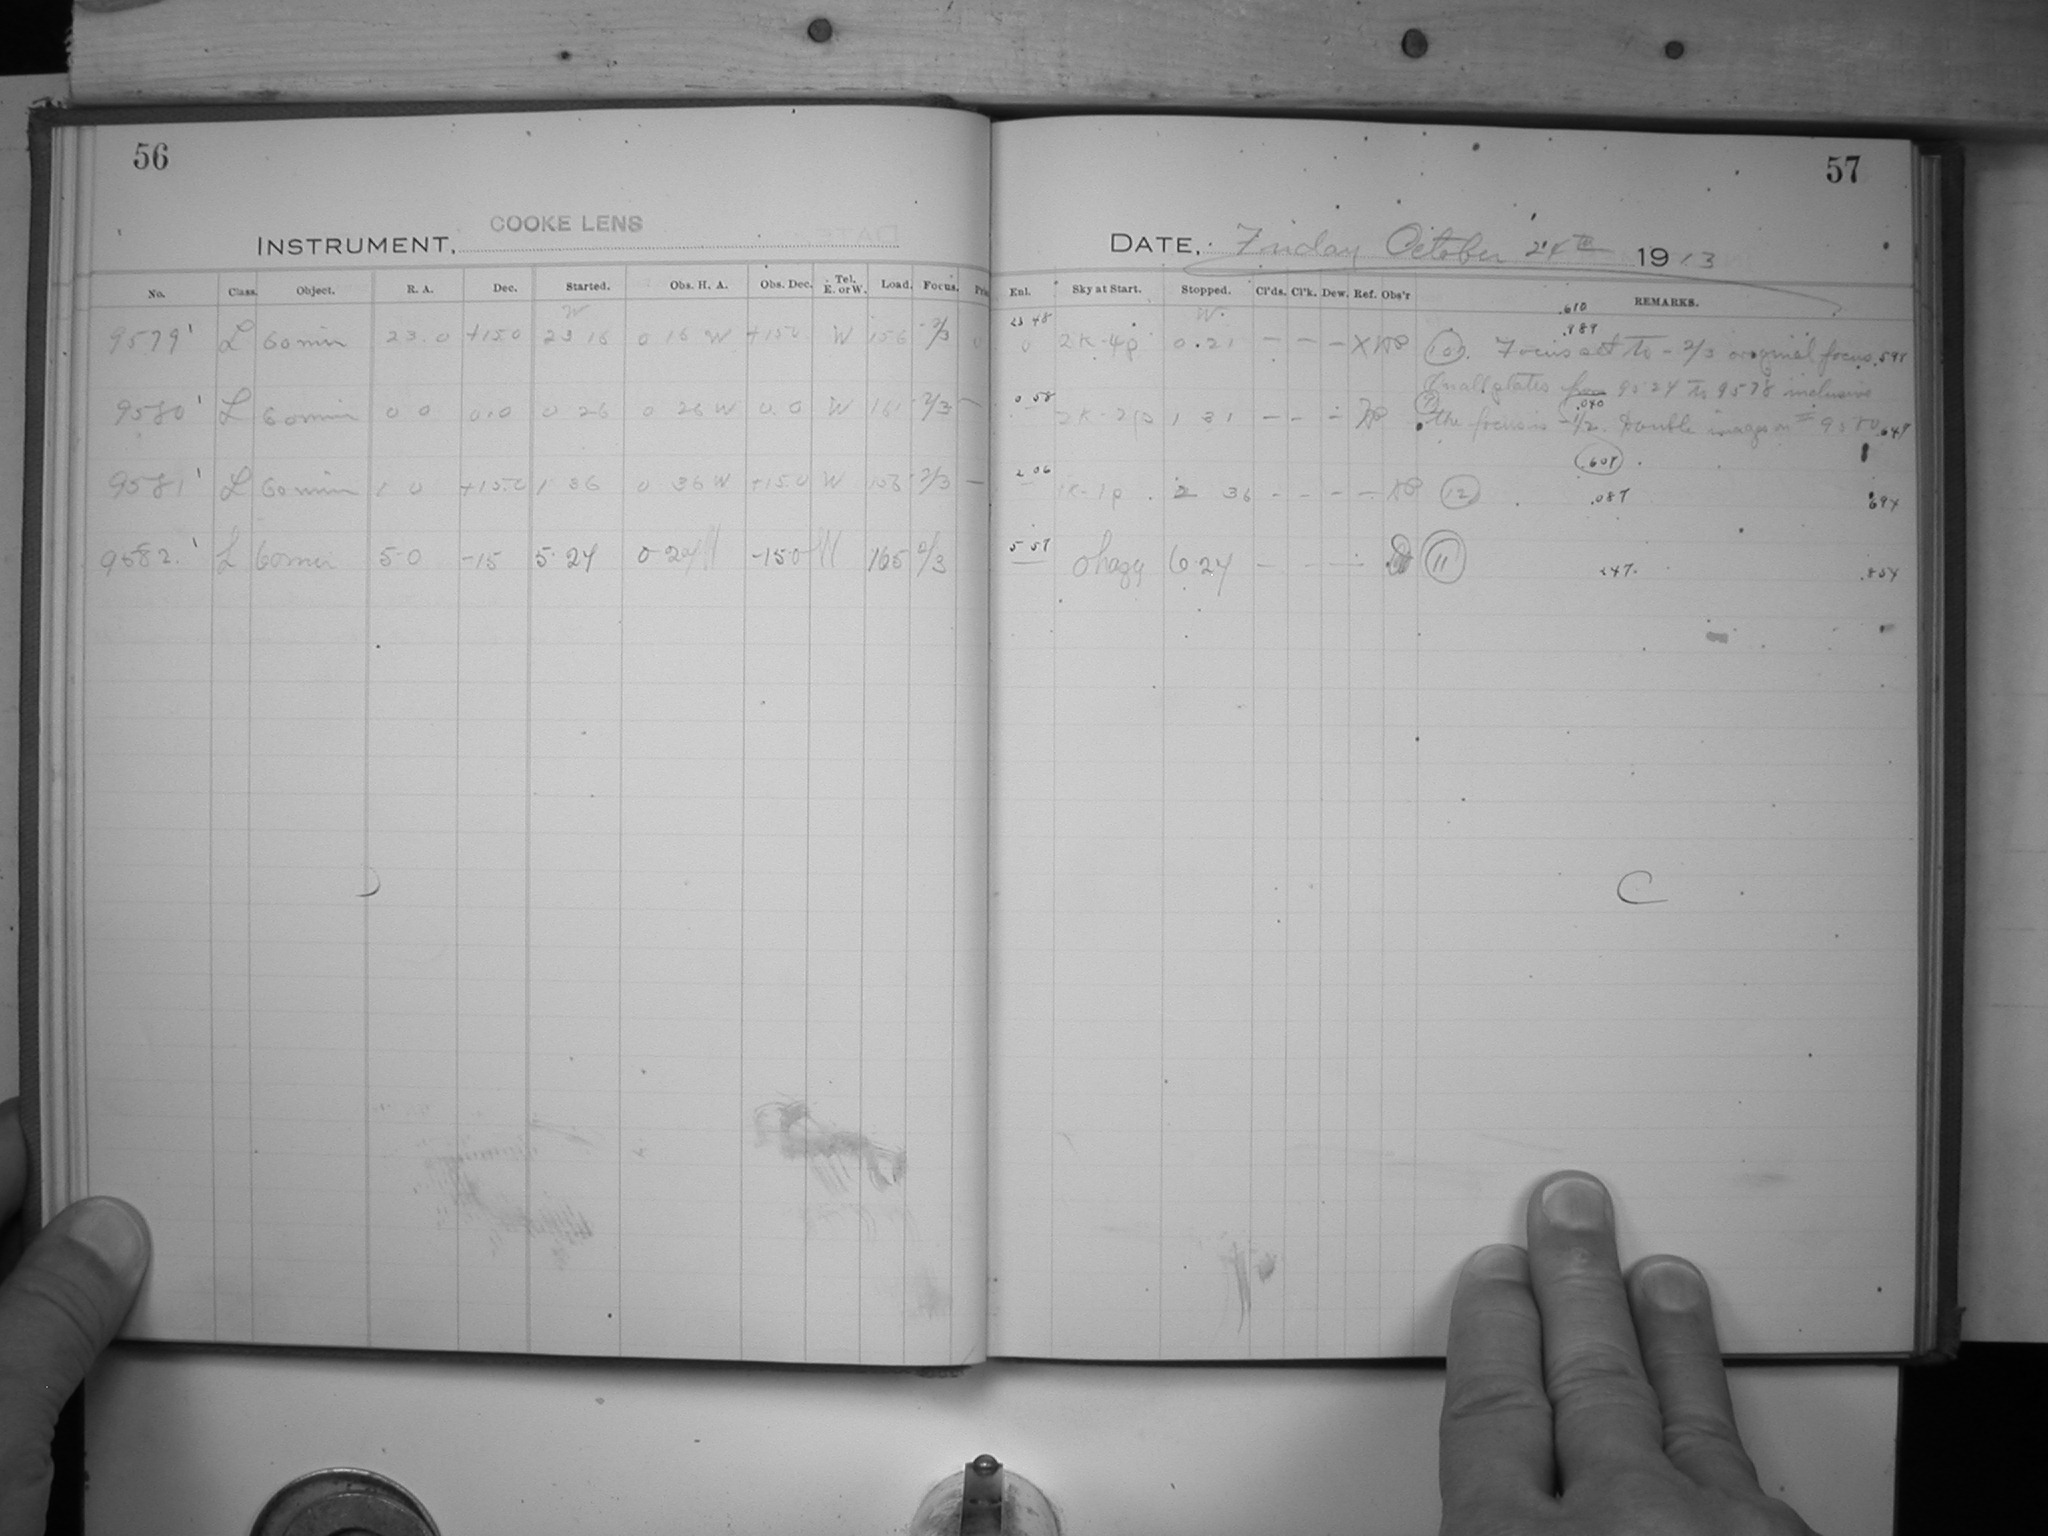 56
57
COOKE LENS
INSTRUMENT,
DATE, Friday October 24th 1913
No. Class. Object. R. A. Dec. Started. Obs. H. A. Obs. Dec. Tel. E. or W. Load. Focus. Enl. Sky at Start. Stopped. Cl'ds. Cl'k. Dew. Ref. Obs'r REMARKS.
W W .610
23 48 .989
9579' L 60 min 23.0 +15.0 23 16 0 16 W +15.0 W 156 -2/3 0 2k-4p 0.21 — — — X (10). Focus set to -2/3 original focus .598
In all plates from 9524 to 9578 inclusive
0 58 .040
9580' L 60 min 0 0 0.0 0 26 0 26 W 0.0 W -2/3 — 2k-2p 1 31 — — — the focus is -1/2. Double images on # 9580 .649
2 06 .609
9581' L 60 min 1 0 +15.0 1 36 0 36 W +15.0 W 156 -2/3 — 1k-1p 2 36 — — — — (12) .087 .694
5 57
9582.' L 60 min 5.0 -15 5.24 0.24 -15.0 165 2/3 0 hazy 6.24 — — — (11) .247. .854
C